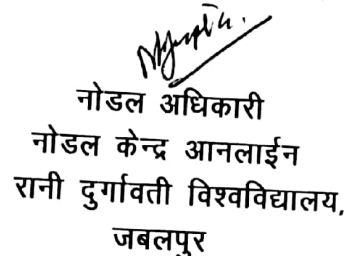 नोडल अधिकारी
नोडल केन्द्र आनलाईन
रानी दुर्गावती विश्वविद्यालय,
जबलपुर